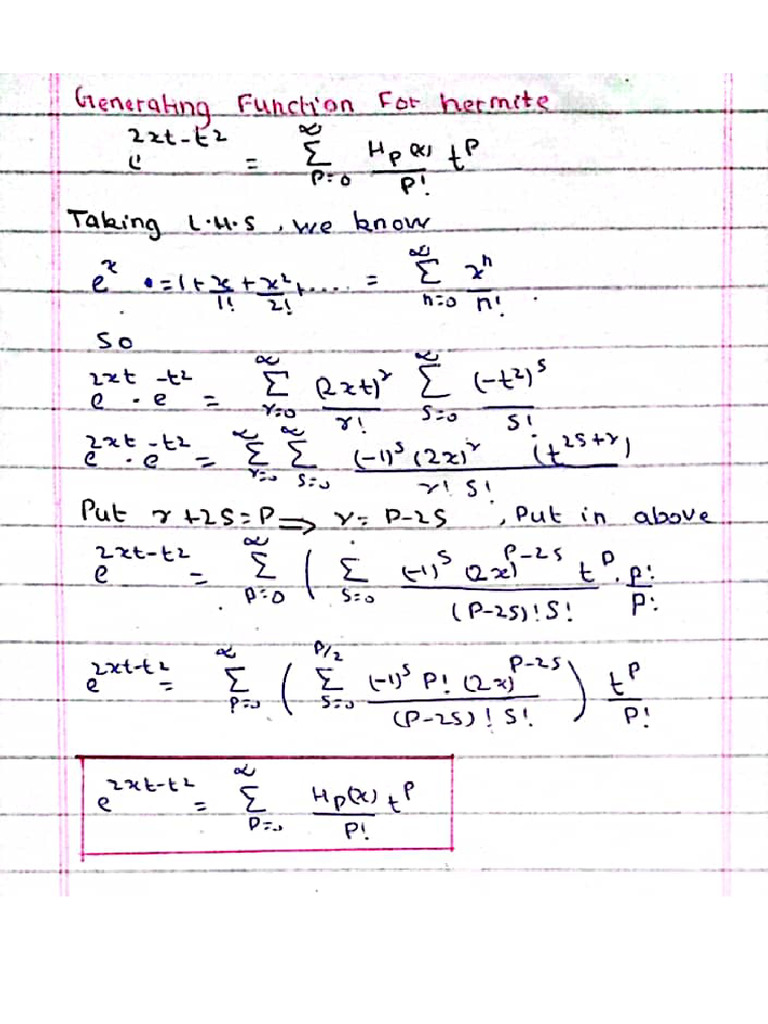 Generating Function For hermite
e^{2xt-t^2} = \sum_{P=0}^{\infty} \frac{H_P(x)}{P!} t^P
Taking L.H.S, we know
e^x = 1 + \frac{x}{1!} + \frac{x^2}{2!} + .... = \sum_{n=0}^{\infty} \frac{x^n}{n!}.
So
e^{2xt} . e^{-t^2} = \sum_{r=0}^{\infty} \frac{(2xt)^r}{r!} \sum_{S=0}^{\infty} \frac{(-t^2)^S}{S!}
e^{2xt} . e^{-t^2} = \sum_{r=0}^{\infty} \sum_{S=0}^{\infty} \frac{(-1)^S (2x)^r (t^{2S+r})}{r! S!}
Put r+2S=P ⇒ r = P-2S , Put in above
e^{2xt-t^2} = \sum_{P=0}^{\infty} ( \sum_{S=0} \frac{(-1)^S (2x)^{P-2S} t^P}{(P-2S)! S!} . \frac{P!}{P!}
e^{2xt-t^2} = \sum_{P=0}^{\infty} ( \sum_{S=0}^{P/2} \frac{(-1)^S P! (2x)^{P-2S}}{(P-2S)! S!} ) \frac{t^P}{P!}
e^{2xt-t^2} = \sum_{P=0}^{\infty} \frac{H_P(x)}{P!} t^P